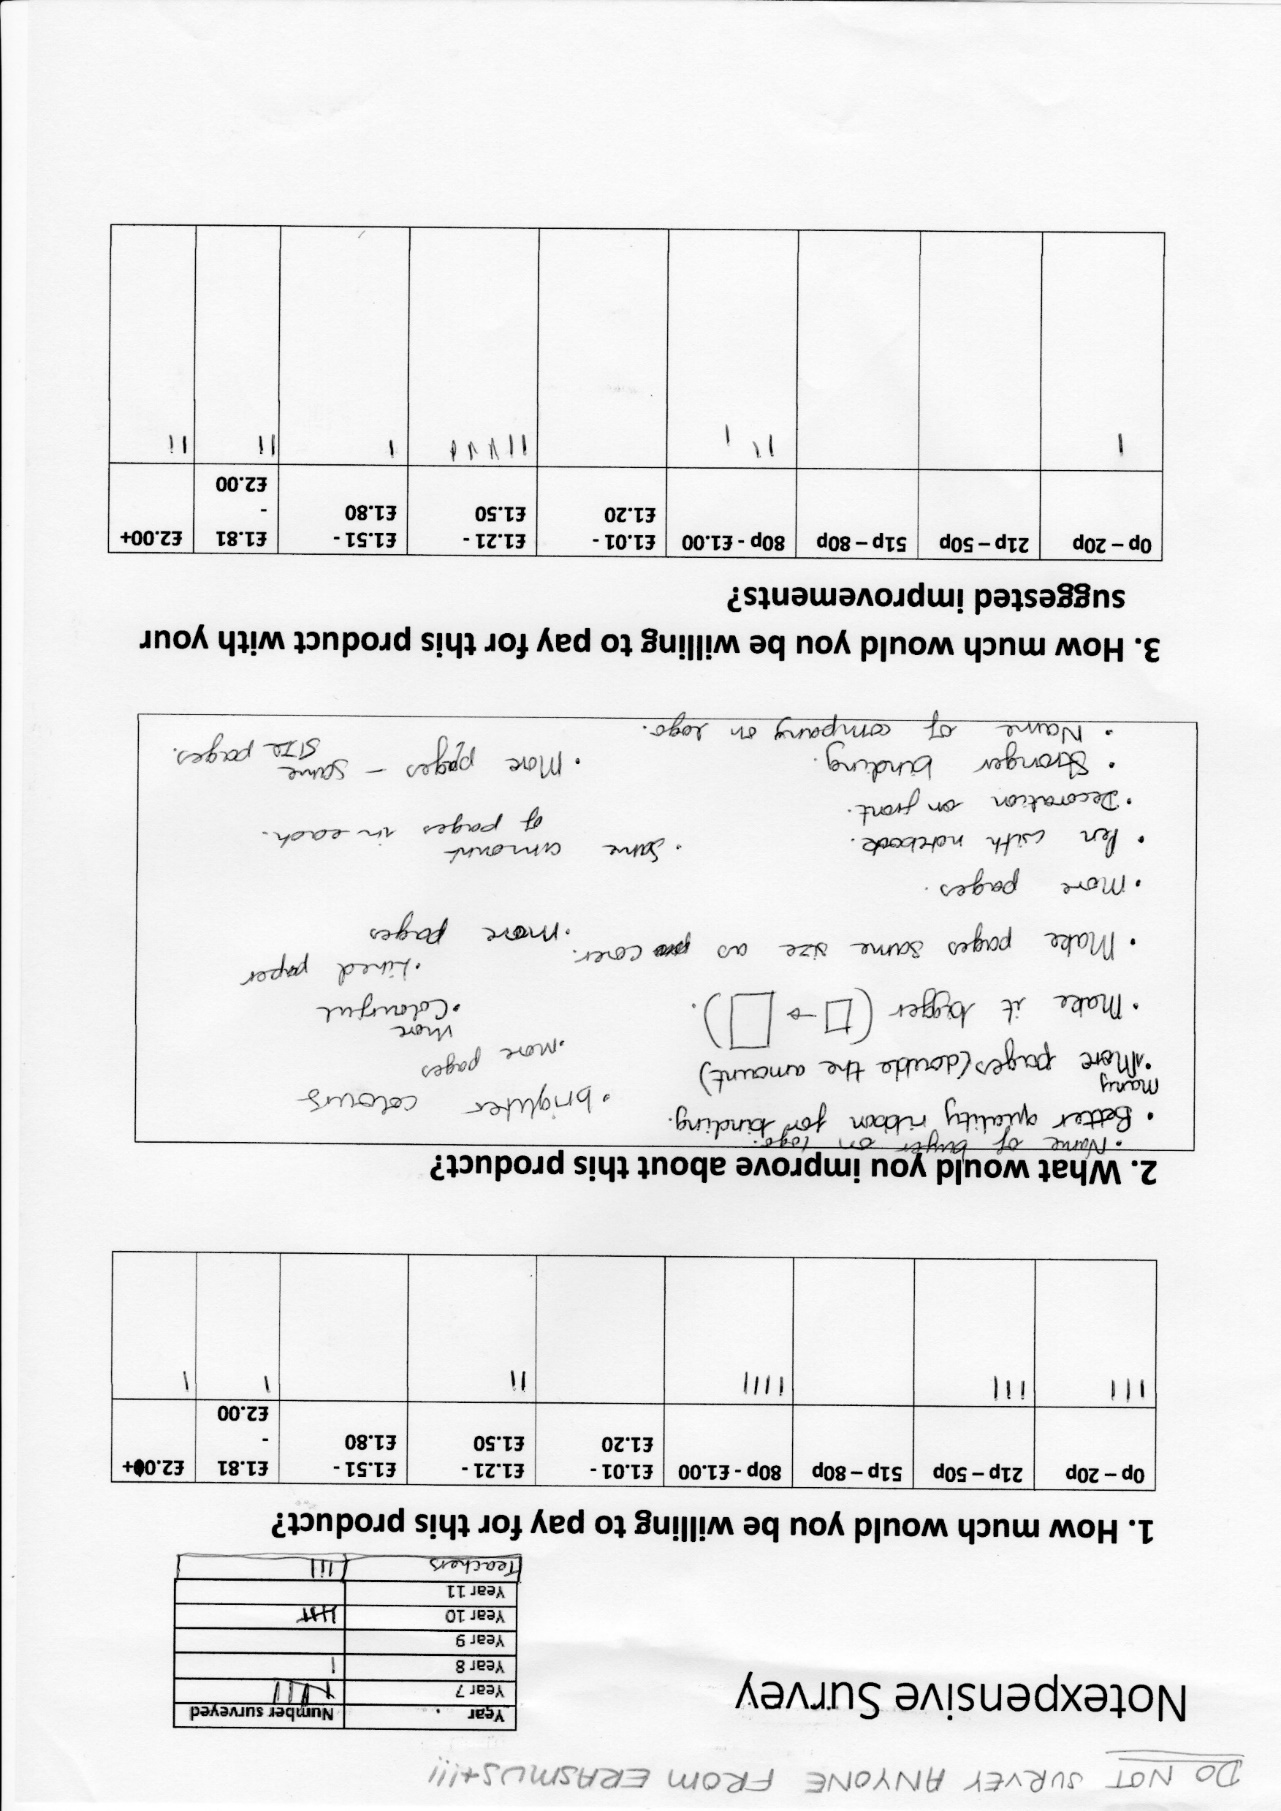 DO NOT SURVEY ANYONE FROM ERASMUS+!!!
Notexpensive Survey
Year Number surveyed
Year 7
Year 8 I
Year 9
Year 10
Year 11
Teachers III
1. How much would you be willing to pay for this product?
0p – 20p 21p – 50p 51p – 80p 80p - £1.00 £1.01 - £1.21 - £1.51 - £1.81 £2.00+
£1.20 £1.50 £1.80 -
£2.00
III III IIII II I I
2. What would you improve about this product?
• Name of buyer on logo.
• Better quality ribbon for binding.
many
• More pages (double the amount)
• Make it bigger (□→□).
• Make pages same size as cover.
• More pages.
• Pen with notebook.
• Decoration on front.
• Stronger binding.
• Name of company on logo.
• brighter colours
• More pages
more
• Colourful
• Lined paper
• more pages
• Same amount
of pages in each.
• More pages – same
size pages.
3. How much would you be willing to pay for this product with your
suggested improvements?
0p – 20p 21p – 50p 51p – 80p 80p - £1.00 £1.01 - £1.21 - £1.51 - £1.81 £2.00+
£1.20 £1.50 £1.80 -
£2.00
I III IIIIII I II II